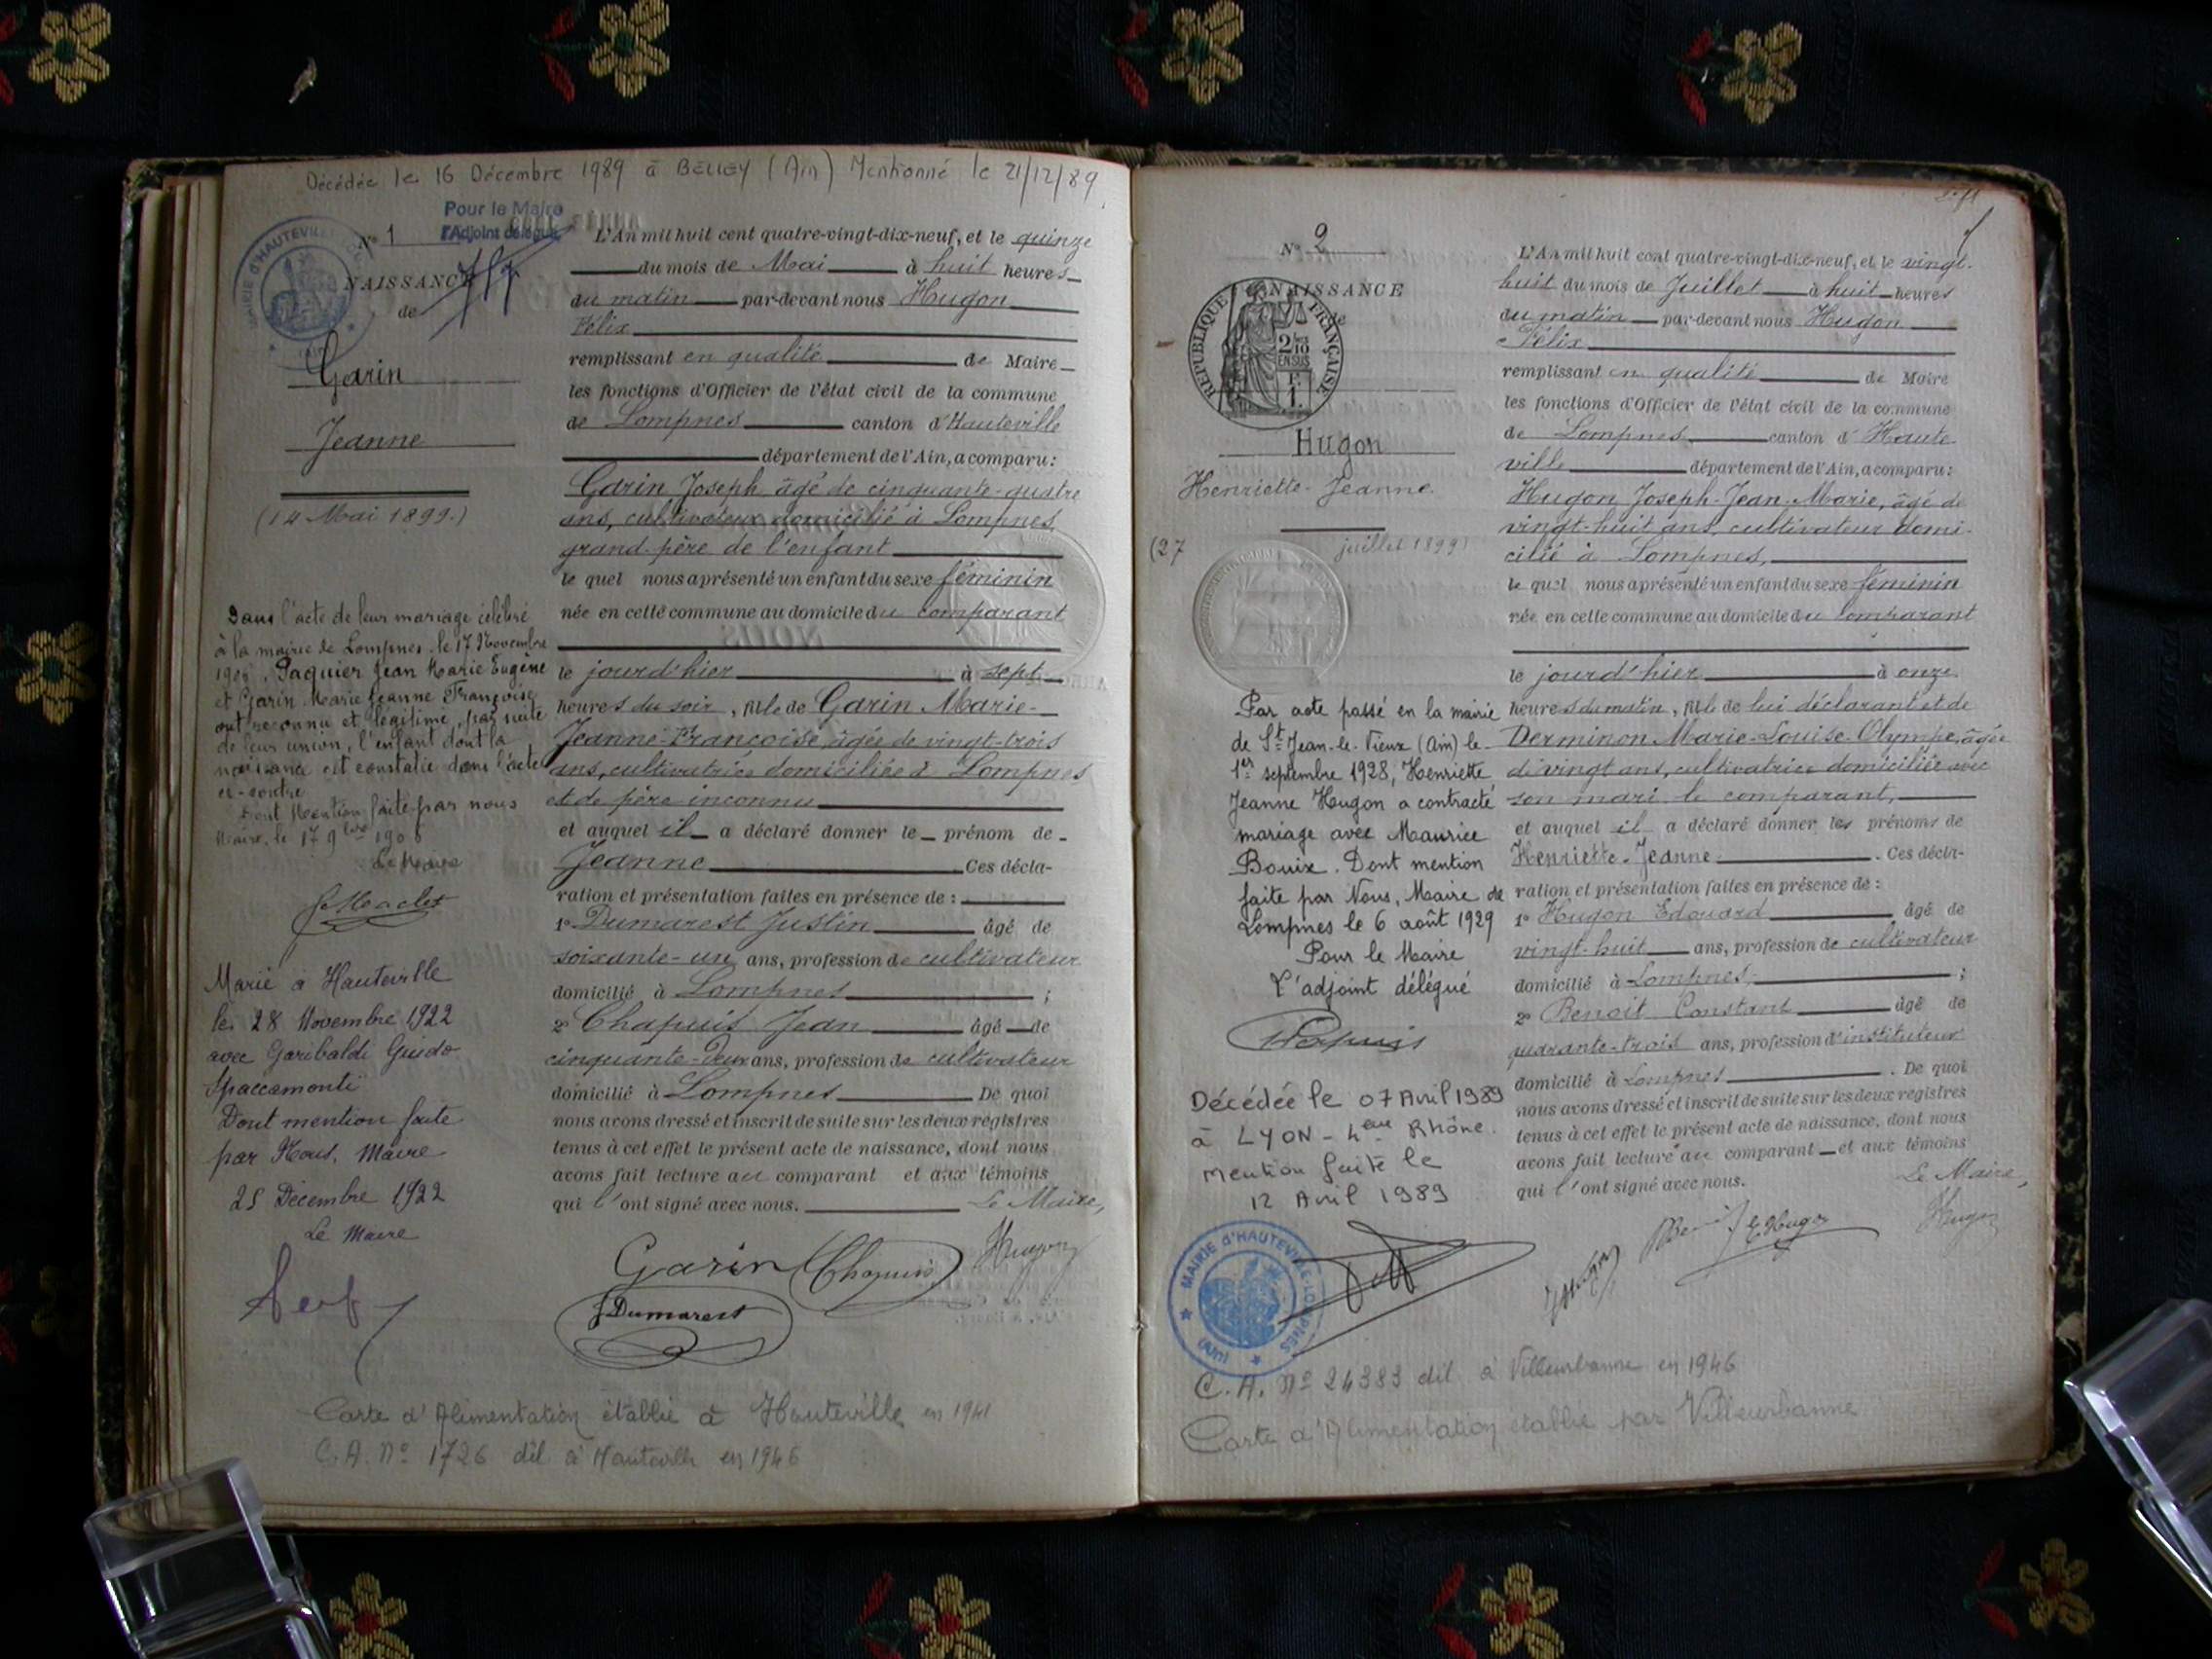 Décédée le 16 Décembre 1989 à BELLEY (Ain) Mentionné le 21/12/89
Pour le Maire
l'Adjoint délégué
MAIRIE d'HAUTEVILLE
N° 1
NAISSANCE
de
Garin
Jeanne
(14 Mai 1899.)
Dans l'acte de leur mariage célébré
à la mairie de Lompnes le 17 Novembre
1906, Paquier Jean Marie Eugène
et Garin Marie Jeanne Françoise
ont reconnu et légitimé, par suite
de leur union, l'enfant dont la
naissance est constatée dans l'acte
ci-contre
Dont Mention faite par nous
Maire, le 17 9bre 1906
Le Maire
Marié à Hauteville
le 28 Novembre 1922
avec Garibaldi Guido
Spaccamonti
Dont mention faite
par Nous, Maire
25 Décembre 1922
Le Maire
L'An mil huit cent quatre-vingt-dix-neuf, et le quinze
du mois de Mai à huit heures
du matin par-devant nous Hugon
Félix
remplissant en qualité de Maire
les fonctions d'Officier de l'état civil de la commune
de Lompnes canton d'Hauteville
département de l'Ain, a comparu:
Garin Joseph âgé de cinquante-quatre
ans, cultivateur domicilié à Lompnes,
grand-père de l'enfant
le quel nous a présenté un enfant du sexe féminin
née en cette commune au domicile du comparant
le jourd'hier à sept
heures du soir, fille de Garin Marie-
Jeanne-Françoise, âgée de vingt-trois
ans, cultivatrice domiciliée à Lompnes
et de père inconnu
et auquel il a déclaré donner le prénom de
Jeanne Ces décla-
ration et présentation faites en présence de :
1° Dumarest Justin âgé de
soixante-un ans, profession de cultivateur
domicilié à Lompnes ;
2° Chapuis Jean âgé de
cinquante-deux ans, profession de cultivateur
domicilié à Lompnes De quoi
nous avons dressé et inscrit de suite sur les deux registres
tenus à cet effet le présent acte de naissance, dont nous
avons fait lecture au comparant et aux témoins
qui l'ont signé avec nous. Le Maire,
Garin Chapuis Hugon
J Dumarest
Carte d'Alimentation établie à Hauteville en 1941
C.A. N° 1726 dél à Hauteville en 1946
N° 2
NAISSANCE
de
REPUBLIQUE FRANÇAISE
2/10
EN SUS
F.
1.
Hugon
Henriette-Jeanne
(27 juillet 1899)
Par acte passé en la mairie
de St Jean-le-Vieux (Ain) le
1er septembre 1928, Henriette
Jeanne Hugon a contracté
mariage avec Maurice
Bouix. Dont mention
faite par Nous, Maire de
Lompnes le 6 août 1929
Pour le Maire
L'adjoint délégué
Décédée le 07 Avril 1989
à LYON - 4ème Rhône.
mention faite le
12 Avril 1989
MAIRIE d'HAUTEVILLE-LOMPNES
(Ain)
L'An mil huit cent quatre-vingt-dix-neuf, et le vingt-
huit du mois de Juillet à huit heures
du matin par-devant nous Hugon
Félix
remplissant en qualité de Maire
les fonctions d'Officier de l'état civil de la commune
de Lompnes canton d'Haute
ville département de l'Ain, a comparu:
Hugon Joseph-Jean-Marie, âgé de
vingt-huit ans, cultivateur domi-
cilié à Lompnes,
le quel nous a présenté un enfant du sexe féminin
née en cette commune au domicile du comparant
le jourd'hier à onze
heures du matin, fille de lui déclarant et de
Derminon Marie-Louise-Olympe, âgée
de vingt ans, cultivatrice domiciliée avec
son mari le comparant,
et auquel il a déclaré donner les prénoms de
Henriette-Jeanne. Ces décla-
ration et présentation faites en présence de :
1° Hugon Edouard âgé de
vingt-huit ans, profession de cultivateur
domicilié à Lompnes ;
2° Benoit Constant âgé de
quarante-trois ans, profession d'instituteur
domicilié à Lompnes. De quoi
nous avons dressé et inscrit de suite sur les deux registres
tenus à cet effet le présent acte de naissance, dont nous
avons fait lecture au comparant et aux témoins
qui l'ont signé avec nous. Le Maire,
E. Hugon Hugon
C.A. N° 24383 dél à Villeurbanne en 1946
Carte d'Alimentation établie par Villeurbanne